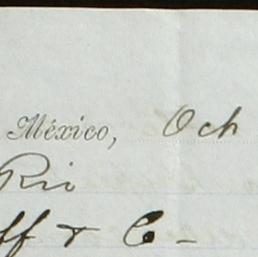 México, Och
Rio
ff & C-